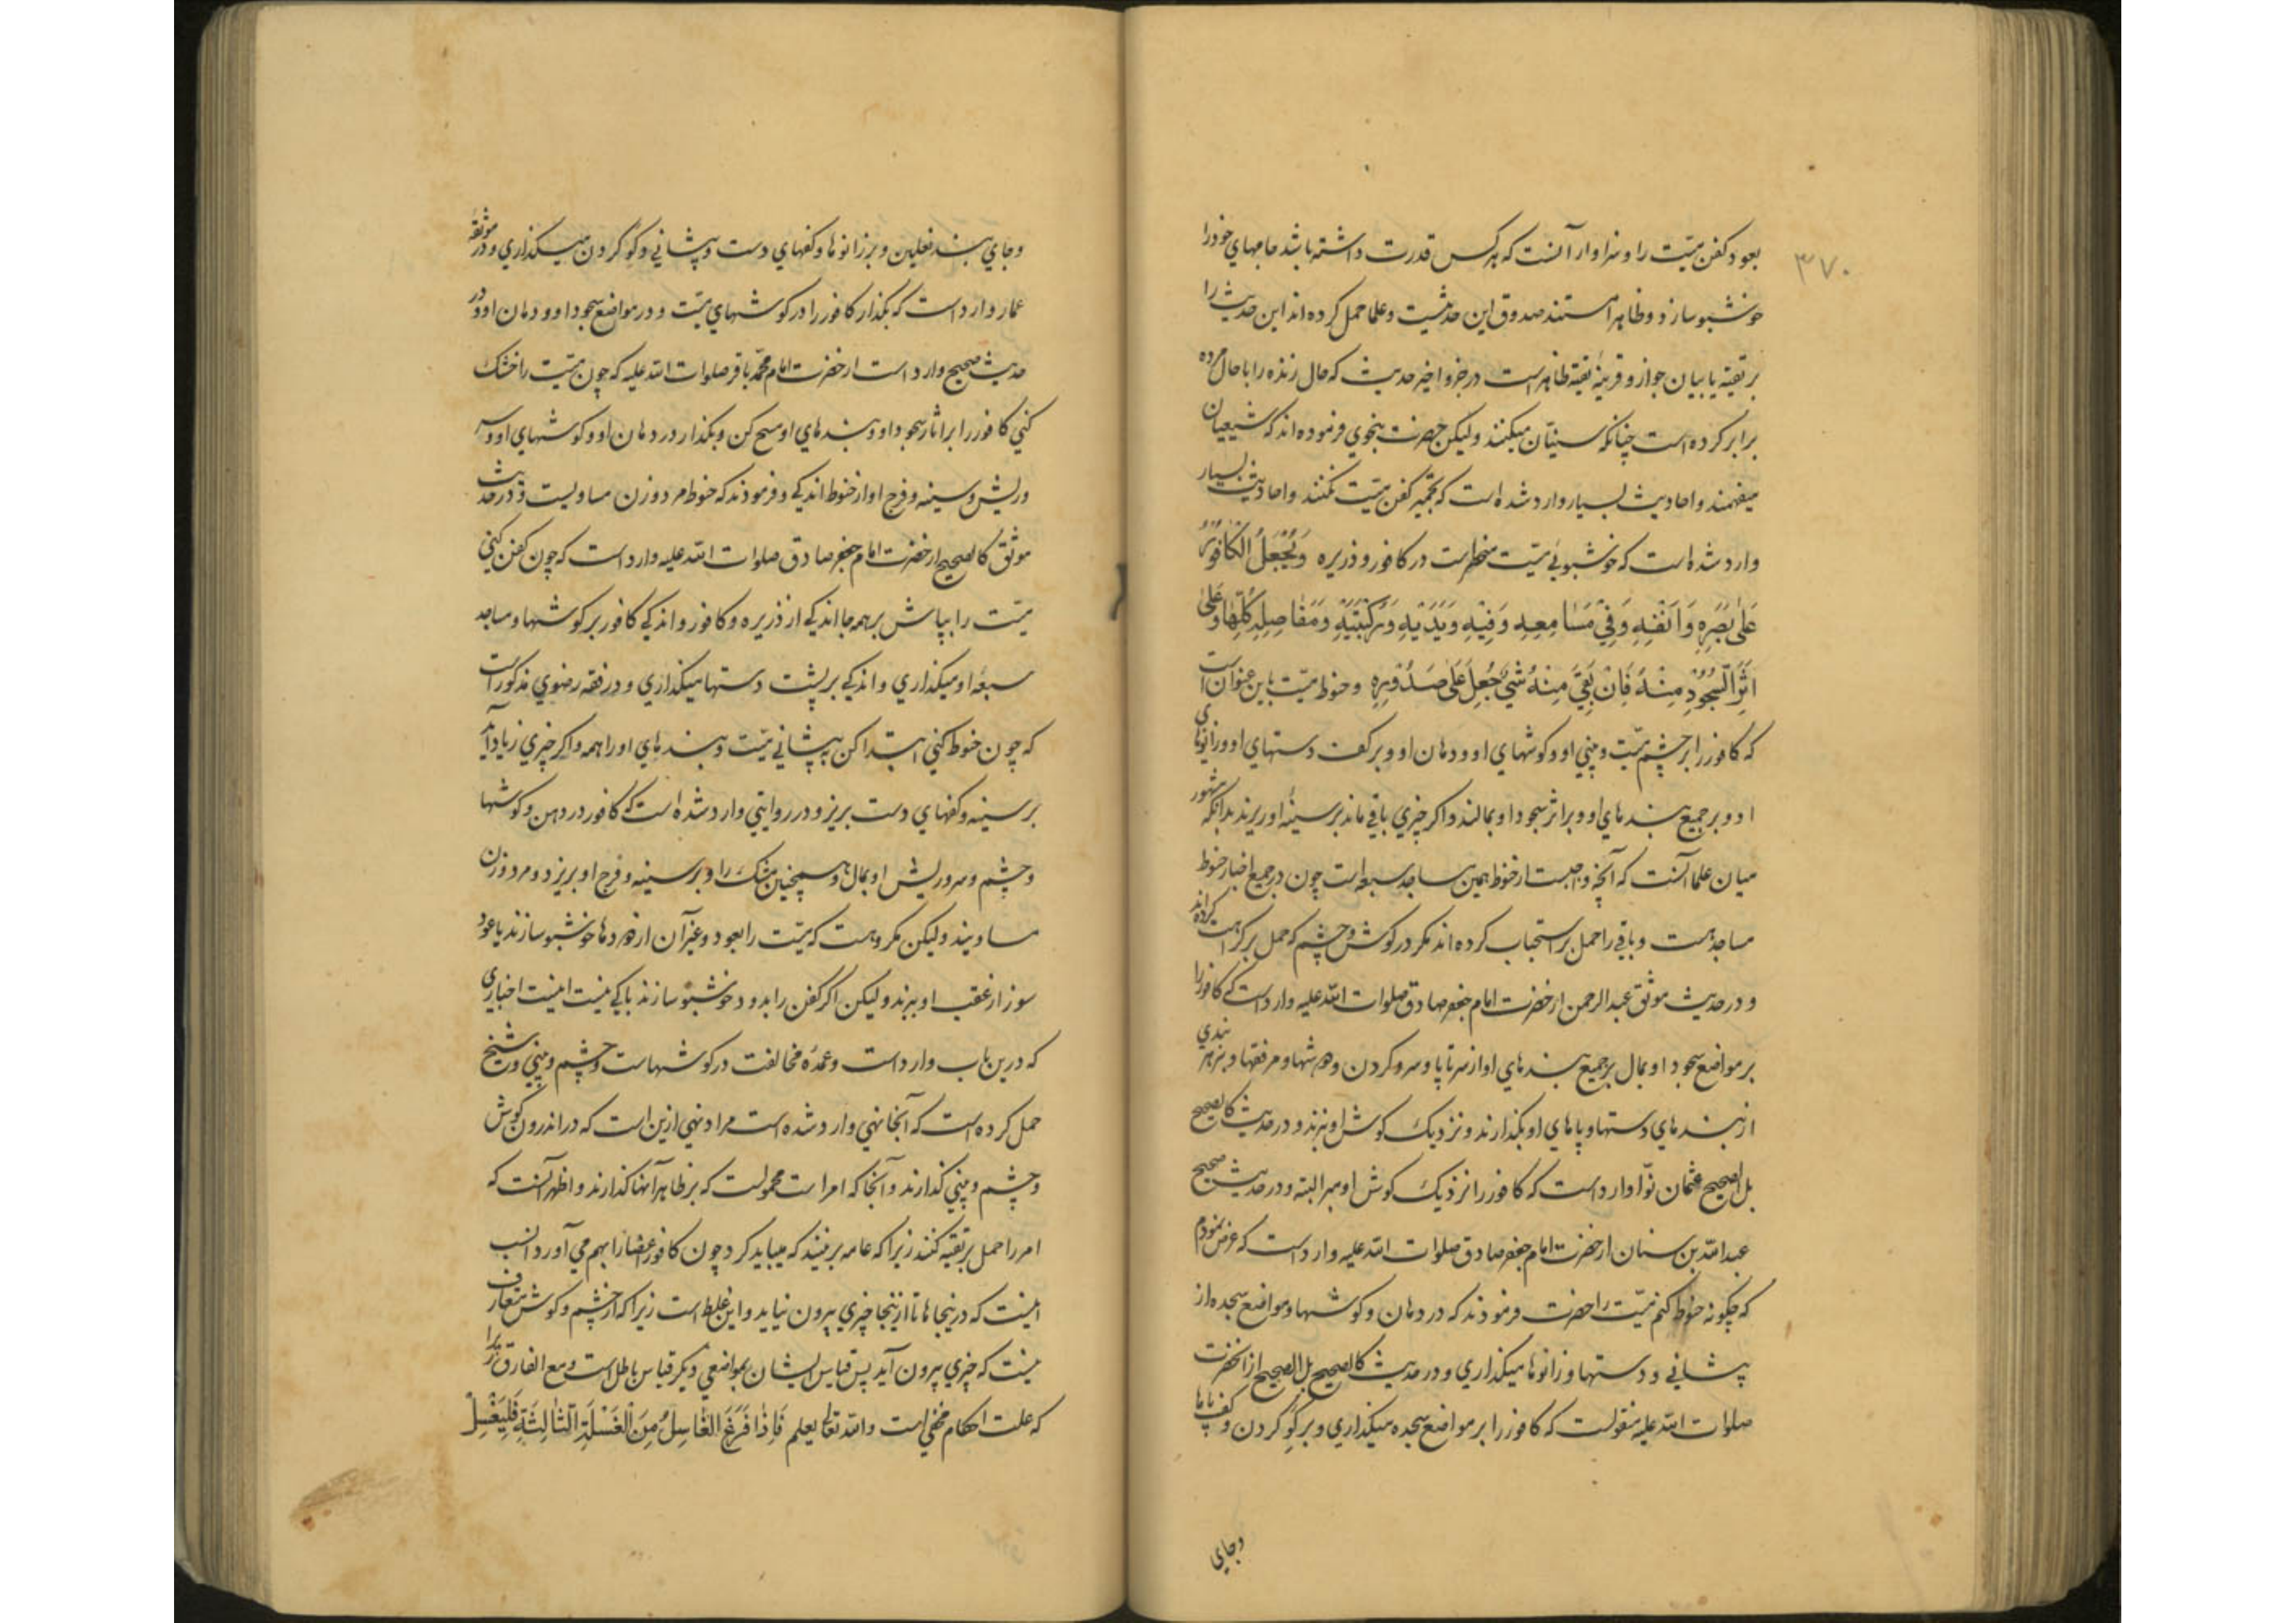 ۳۷۰
بعود کفن میّت را و سزاوار آنست که هر کس قدرت داشته باشد جامهای خودرا
خوشبو سازد و ظاهرا مستند صدوق این حدیثست و علما حمل کرده‌اند این حدیث را
بر تقیّه یا بیان جواز و قرینهٔ تقیّه ظاهر است در جزو اخیر حدیث که حال زنده را با حال مرده
برابر کرده است چنانکه سنیّان میکنند و لیکن حضرت بنحوی فرموده‌اند که شیعیان
میفهمند و احادیث بسیار وارد شده است که تجمیر کفن میّت نکنند و احادیث بسیار
وارد شده است که خوشبوئی میّت منحصر است در کافور و ذریره وَیُجْعَلُ الْکَافُورُ
عَلَی بَصَرِهِ وَاَنْفِهِ وَفِي مَسَامِعِهِ وَفِيْهِ وَيَدَيْهِ وَرُكْبَتَيْهِ وَمَفَاصِلِهِ كُلِّهَا وَعَلَى
اَثَرِ السُّجُوْدِ مِنْهُ فَاِنْ بَقِيَ مِنْهُ شَيْءٌ جُعِلَ عَلَى صَدْرِهِ و حنوط میّت باین عنوان است
که کافور را بر چشم میّت و بینی او و کوشهای او و دهان او و بر کف دستهای او و زانوهای
او و بر جمیع بندهای او و بر اثر سجود او بمالند و اکر چیزی باقی ماند بر سینهٔ او ریزند بدانکه مشهور
میان علما آنست که آنچه واجبست از حنوط همین مساجد سبعه است چون در جمیع اخبار حنوط
مساجد هست و باقی را حمل بر استحباب کرده‌اند مکر در کوش و چشم که حمل بر کراهت کرده‌اند
و در حدیث موثق عبدالرحمن از حضرت امام جعفر صادق صلوات الله علیه وارد است که کافور را
بر مواضع سجود او بمال بر جمیع بندهای او از سر تا پا و سر و کردن و دوشها و مرفقها و بر هر بندی
از بندهای دستها و پاهای او بکذارند و نزدیک کوش او نبرند و در حدیث کالصحیح
بل الصحیح عثمان نوّا وارد است که کافور را نزدیک کوش او مبر البته و در حدیث صحیح
عبدالله بن سنان از حضرت امام جعفر صادق صلوات الله علیه وارد است که عرض نمودم
که چکونه حنوط کنم میّت را حضرت فرمودند که در دهان و کوشها و مواضع سجده از
پیشانی و دستها و زانوها میکذاری و در حدیث کالصحیح بل الصحیح از آنحضرت
صلوات الله علیه منقولست که کافور را بر مواضع سجده میکذاری و بر کو کردن و کف پاها
وجای
وجای بند نعلین و بر زانوها و کفهای دست و پیشانی و کو کردن میکذاری و در موثقه
عمار وارد است که بکذار کافور را در کوشهای میّت و در مواضع سجود او و دهان او و در
حدیث صحیح وارد است از حضرت امام محمّد باقر صلوات الله علیه که چون میّت را خشک
کنی کافور را بر اثار سجود او و بندهای او مسح کن و بکذار در دهان او و کوشهای او و سر
و ریش و سینه و فرج او از حنوط اندکی و فرمودند که حنوط مرد و زن مساویست و در حدیث
موثق کالصحیح از حضرت امام جعفر صادق صلوات الله علیه وارد است که چون کفن کنی
میّت را بپاش بر همه جا اندکی از ذریره و کافور و اندکی کافور بر کوشها و مساجد
سبعهٔ او میکذاری و اندکی بر پشت دستها میکذاری و در فقه رضوی مذکور است
که چون حنوط کنی ابتدا کن به پیشانی میّت و بندهای او را همه و اکر چیزی زیاد آید
بر سینه و کفهای دست بریز و در روایتی وارد شده است که کافور در دهن و کوشها
و چشم و سر و ریش او بمال و همچنین مشک را و بر سینه و فرج او بریزد و مرد و زن
مساویند و لیکن مکروهست که میّت را بعود و غیر آن از دودها خوشبو سازند یا عود
سوز از عقب او ببرند و لیکن اکر کفن را بدود خوشبو سازند باکی نیست اینست اخباری
که درین باب وارد است و عمدهٔ مخالفت در کوشهاست و چشم و بینی و شیخ
حمل کرده است که آنجا نهی وارد شده است مراد نهی ازین است که در اندرون کوش
و چشم و بینی کذارند و آنجا که امر است محمولست که بر ظاهر آنها کذارند و اظهر آنست که
امر را حمل بر تقیه کنند زیرا که عامه برنیند که میباید کرد چون کافور اعضا را بهم می آورد انسب
اینست که درینجاها تا ازینجا چیزی بیرون نیاید و این غلط است زیرا که از چشم و کوش متعارف
نیست که چیزی بیرون آید پس قیاس ایشان بمواضعی دیکر قیاس باطل است و مع الفارق زیرا
که علت احکام مخفی است والله تعالی یعلم فَاِذَا فَرَغَ الْغَاسِلُ مِنَ الْغَسْلَةِ الثَّالِثَةِ فَلْيَغْسِلْ